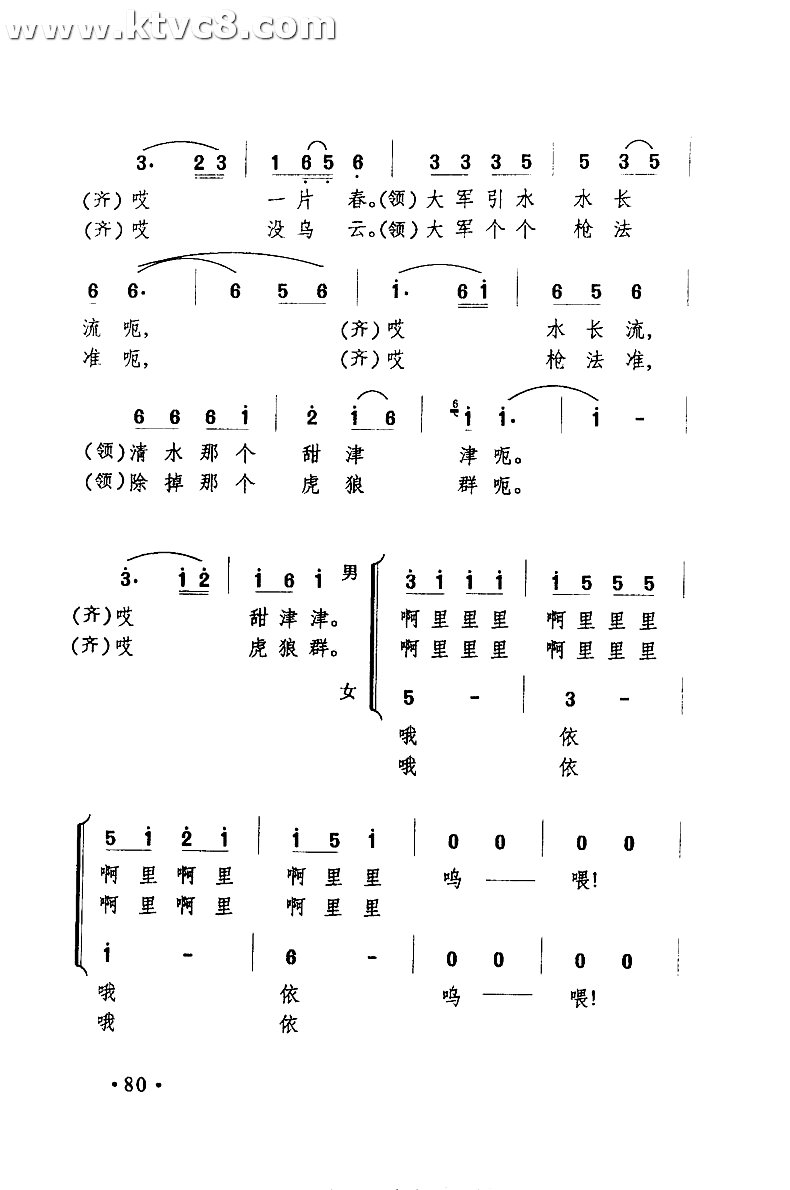 www.ktvc8.com
3. 2 3 | 1 6 5 6 | 3 3 3 5 | 5 3 5 |
(齐)哎 一片 春。(领)大军引水 水长
(齐)哎 没乌 云。(领)大军个个 枪法
6 6. | 6 5 6 | i. 6 i | 6 5 6 |
流呃, (齐)哎 水长流,
准呃, (齐)哎 枪法准,
6 6 6 i | 2 i 6 | 6 i i. | i - |
(领)清水那个 甜津 津呃。
(领)除掉那个 虎狼 群呃。
3. i 2 | i 6 i 男 3 i i i | i 5 5 5 |
(齐)哎 甜津津。 啊里里里 啊里里里
(齐)哎 虎狼群。 啊里里里 啊里里里
女 5 - | 3 - |
哦 依
哦 依
5 i 2 i | i 5 i | 0 0 | 0 0 |
啊里啊里 啊里里 呜—— 喂!
啊里啊里 啊里里
i - | 6 - | 0 0 | 0 0 |
哦 依 呜—— 喂!
哦 依
·80·